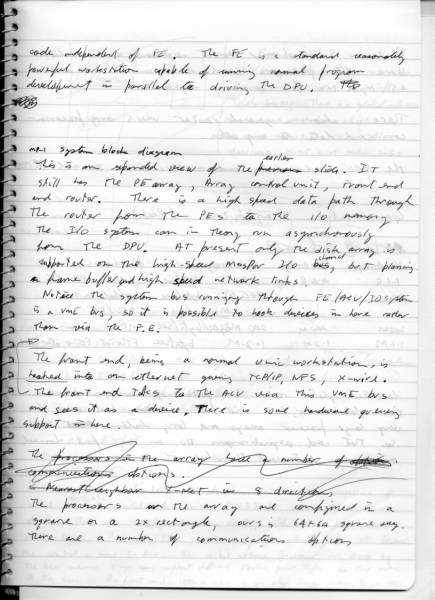 code independent of FE. The FE is a standard reasonably
powerful workstation capable of running normal program
development in parallel to driving the DPU.
mp1 system block diagram
This is an expanded view of the earlier slide. IT
still has the PE array, Array control unit, Front end
and router. There is a high speed data path through
the router from the PEs to the I/O memory
The I/O system can in theory run asynchronously
from the DPU. AT present only the disk array is
supported on the high-speed MasPar I/O channel, but planning
a frame buffer and high speed network links.
Notice the system bus running through FE/ACU/IO system
is a VME bus, so it is possible to hook devices in here rather
than via the F.E.
The front end, being a normal unix workstation, is
hooked into an ethernet giving TCP/IP, NFS, X-wire.
The front end talks to the ACU via this VME bus
and sees it as a device. There is some hardware queueing
support in here.
The processors in the array have a number of
communications options.
Nearest neighbour X-Net in 8 directions
The processors in the array are configured in a
square or a 2x rectangle, ours is 64x64 square array.
There are a number of communications options